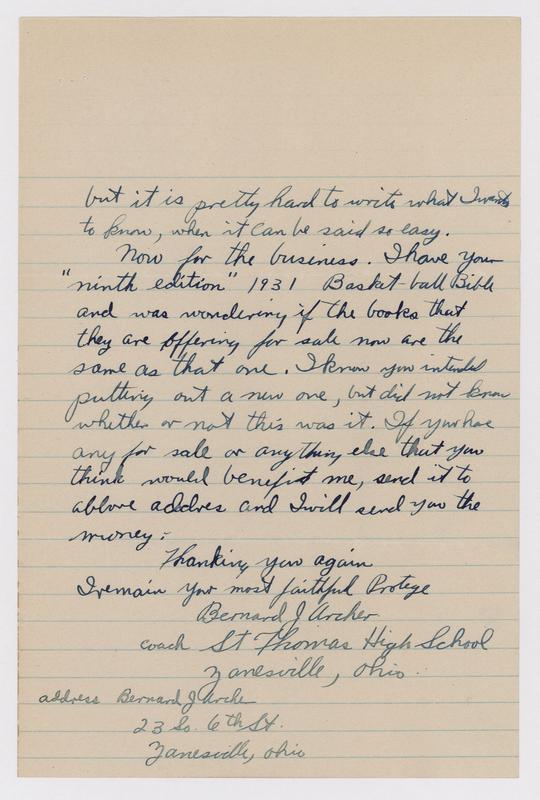 but it is pretty hard to write what I wants
to know, when it can be said so easy.
Now for the business. I have your
"ninth edition" 1931 Basket-ball Bible
and was wondering if the books that
they are offering for sale now are the
same as that one. I know you intended
putting out a new one, but did not know
whether or not this was it. If you has
any for sale or anything else that you
think would benefit me, send it to
abbove addres and I will send you the
money.
Thanking you again
I remain your most faithful Protege
Bernard J Archer
coach St Thomas High School
Zanesville, Ohio.
address Bernard J Archer
23 So. 6th St.
Zanesville, Ohio